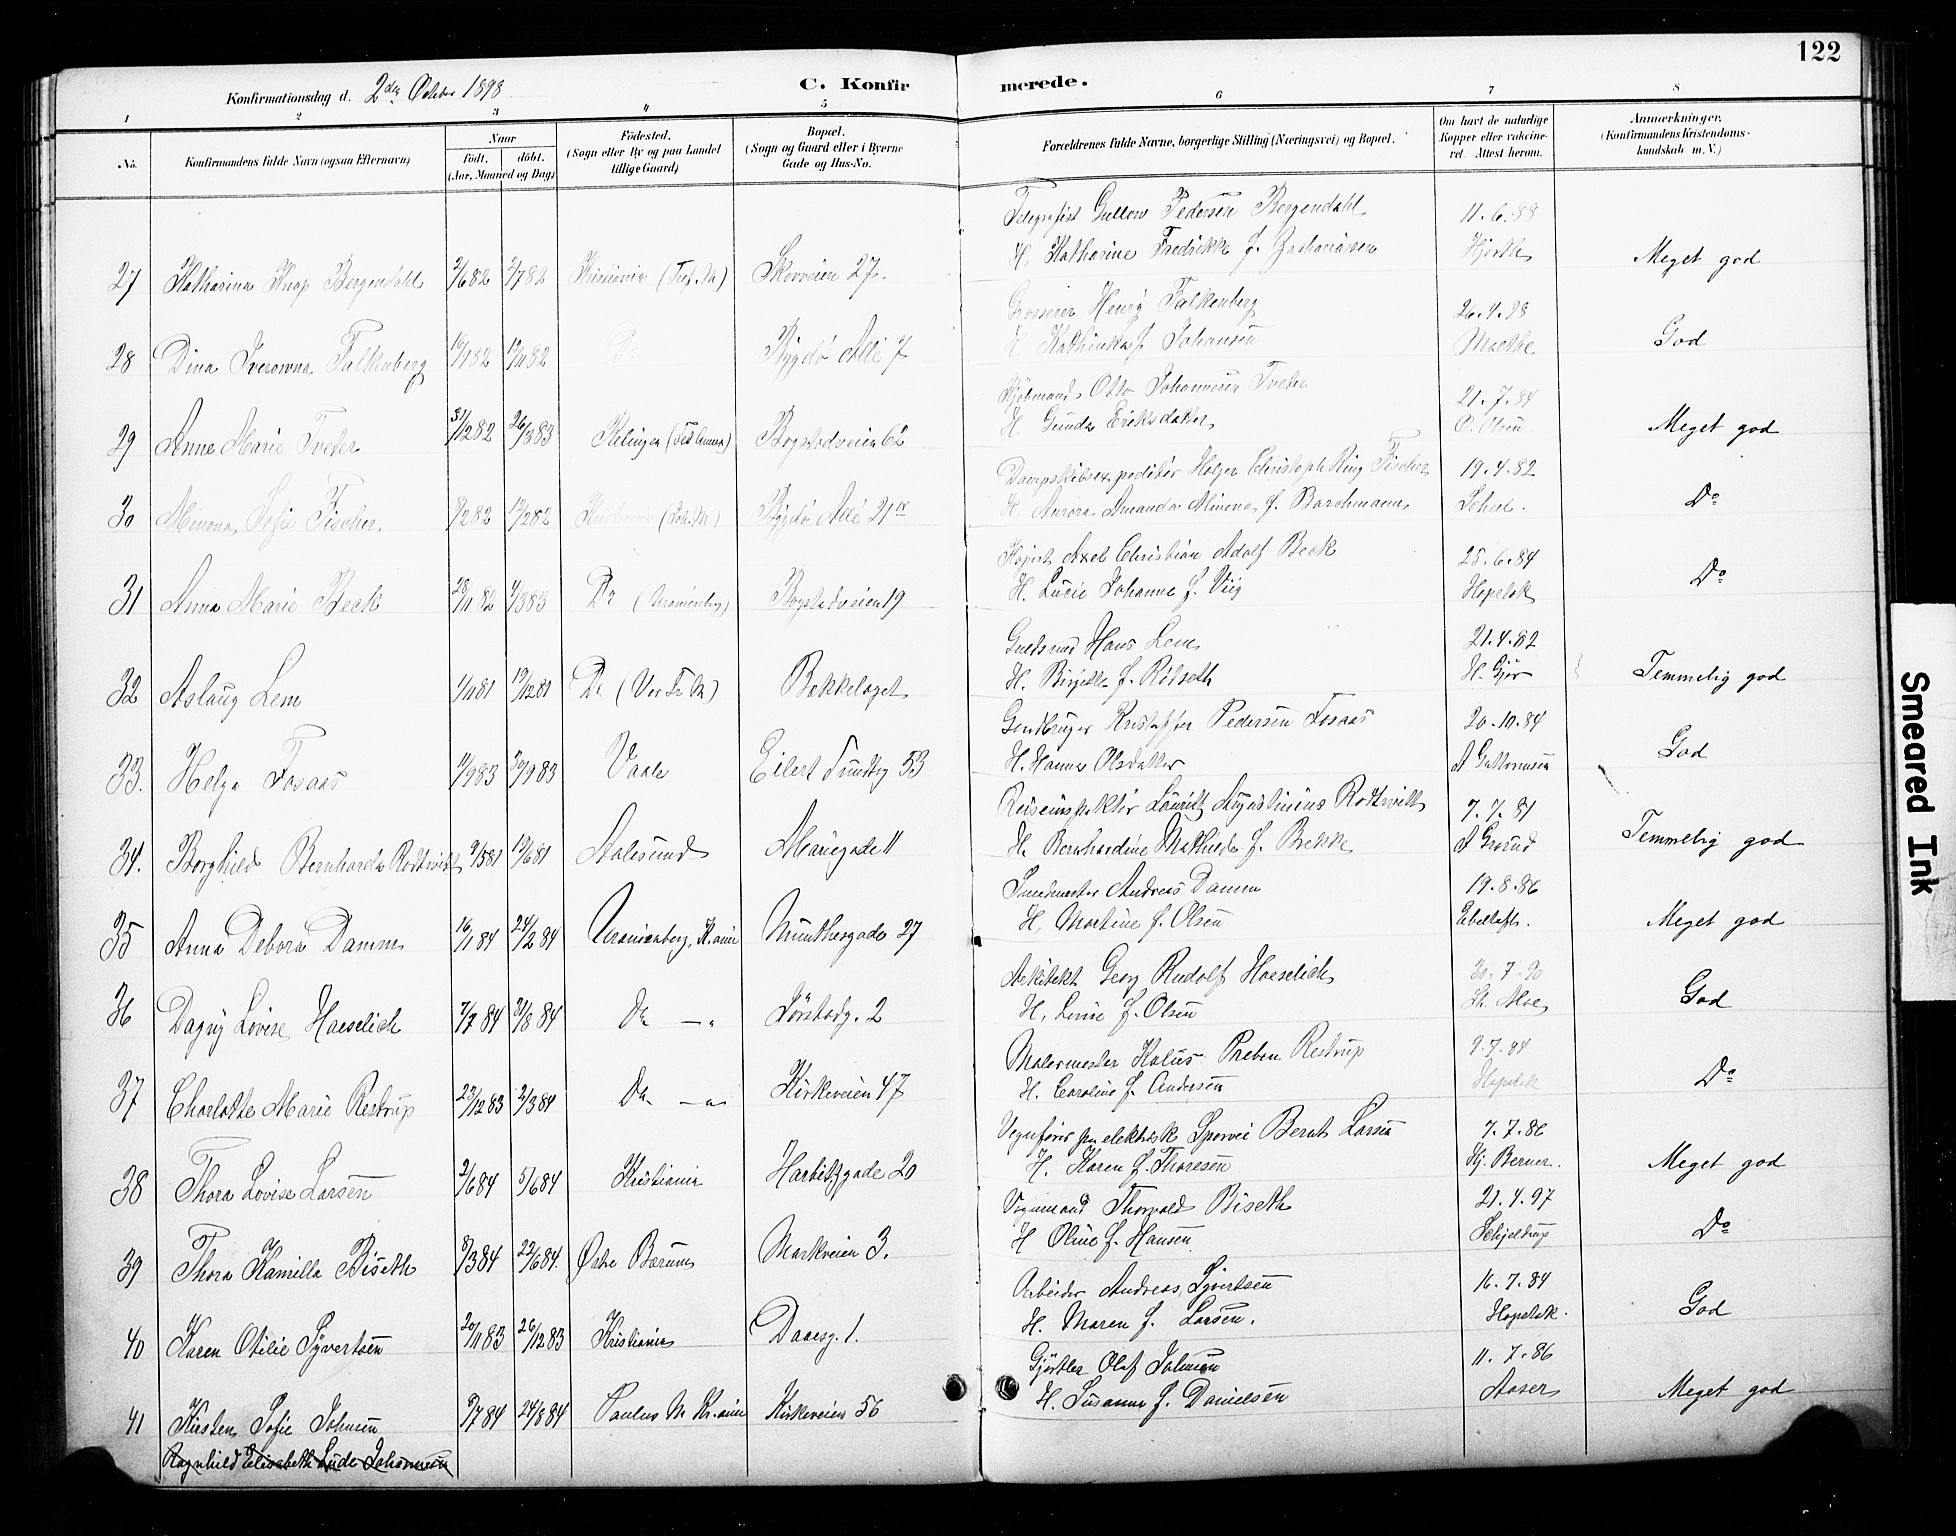 122
Konfirmationsdag d. 2den October 1898
C. Konfirmerede.
1 2 3 4 5 6 7 8
No.
Konfirmandens fulde Navn (ogsaa Efternavn)
Naar
födt. döbt.
(Aar, Maaned og Dag)
Födested.
(Sogn eller By og paa Landet
tillige Gaard)
Bopæl.
(Sogn og Gaard eller i Byerne
Gade og Hus-No.
Forældrenes fulde Navne, borgerlige Stilling (Næringsvei) og Bopæl.
Om havt de naturlige
Kopper eller vakcine-
ret. Attest herom.
Anmærkninger.
(Konfirmandens Kristendoms-
kundskab m. V.)
Telegrafist Pedersen Bergendahl 11.6.88
27 Katharina Knap Bergendahl 2/6 82 2/7 82 Kristiania Skovveien 27. H. Katharine Fredrikke f. Zachariasen Hjorth Meget god
Grosserer Henrÿ Falkenberg
28 Dina Falkenberg 12/11 82 Do Bygdø Allé 7 H. Kathinka f. Johansen God
Kjøbmand Otto Johannesen Tveter 21.7.84
29 Anne Marie Tveter 31/12 82 26/3 83 Bogstadveien 62 H. Gunda Eriksdatter O. Olsen Meget god
Dampskibsexpeditør Holger Christoph Ring Fischer 19.4.82
30 Minona Sofie Fischer Kristiania Bygdø Allé 21 H. Aurora Amanda Minona f. Barchmann Do
Kopist Axel Christian Adolf Beck 25.6.84
31 Anna Marie Beck 28/11 82 4/3 83 Do (Uranienborg) Bogstadveien 19 H. Lucie Johanne f. Viig Hopstok Do
Hans Lem 21.4.82
32 Aslaug Lem 1/11 81 19/12 81 Do Bekkelaget H. f. Rødseth H. Gjør Temmelig god
Kristoffer Pedersen Fosaas 20.10.84
33. Helga Fosaas 11/9 83 30/9 83 Vaale Eilert Sundtsg 53 H. Hanna Olsdatter God
Reiseinspektør Lauritz Augustinius Rodtwitt 7.7.81
34. Borghild Bernharda Rodtwitt 9/5 81 19/6 81 Aalesund Mariegade 11 H. Bernhardine Mathilde f. Bekke Temmelig god
Andreas Damm 19.8.86
35 Anna Debora Damm 16/1 84 24/2 84 Uranienborg, Kr.ania Munthesgade 27 H. Martine f. Olsen Meget god
Arkitekt Georg Rudolf Haeselich 30.7.90
36 Dagnÿ Lovise Haeselich 7/7 84 31/8 84 Do —„ Sørstadg. 2 H. Lovise f. Olsen Moe God
Malermester Kolius Preben Restrup 9.7.84
37 Charlotte Marie Restrup 23/12 83 2/3 84 Do —„— Kirkeveien 47 H. Caroline f. Andersen Hopstok Do
Vognfører paa elektrisk Sporvei Bernt Larsen 7.7.86
38 Thora Lovise Larsen 2/6 84 5/6 84 Kristiania Harbitzgade 20 H. Karen f. Thoresen Hj. Berner. Meget god
Vognmand Thorvald Biseth 21.4.97
39 Thora Kamilla Biseth 8/3 84 22/6 84. Østre Bærum Markveien 3. H Oline f. Hansen Schjeldrup Do
Arbeider Andreas Sÿvertsen 16.7.84
40 Karen Otilie Sÿvertsen 20/11 83 26/12 83 Kristiania Daaesg. 1. H. Maren f. Larsen. Hopstok. God
Gjørtler Olaf Johnsen 11.7.86
41 Kirsten Sofie Johnsen 9/7 84 24/8 84 Paulus M Kr.ania Kirkeveien 56 H. Susanna f. Danielsen Aaser Meget god
Ragnhild Elisabeth Johannesen
Smeared Ink